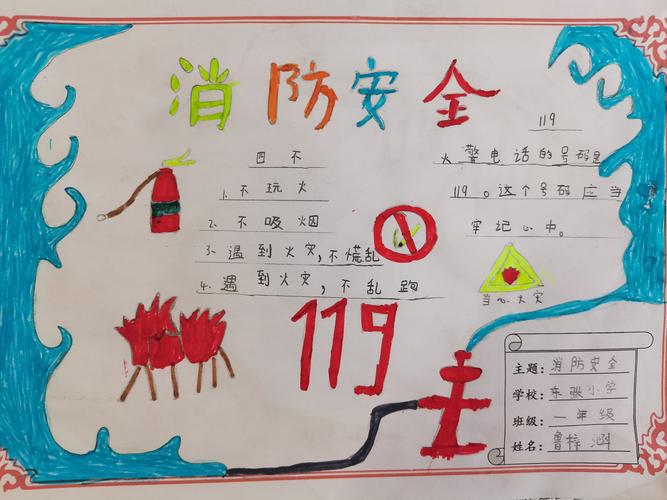 消防安全
四不
1.不玩火
2.不吸烟
3.遇到火灾,不慌乱
4.遇到火灾,不乱跑
119
火警电话的号码是
119。这个号码应当
牢记心中。
当心火灾
119
主题:消防安全
学校:东张小学
班级:一年级
姓名:鲁梓涵